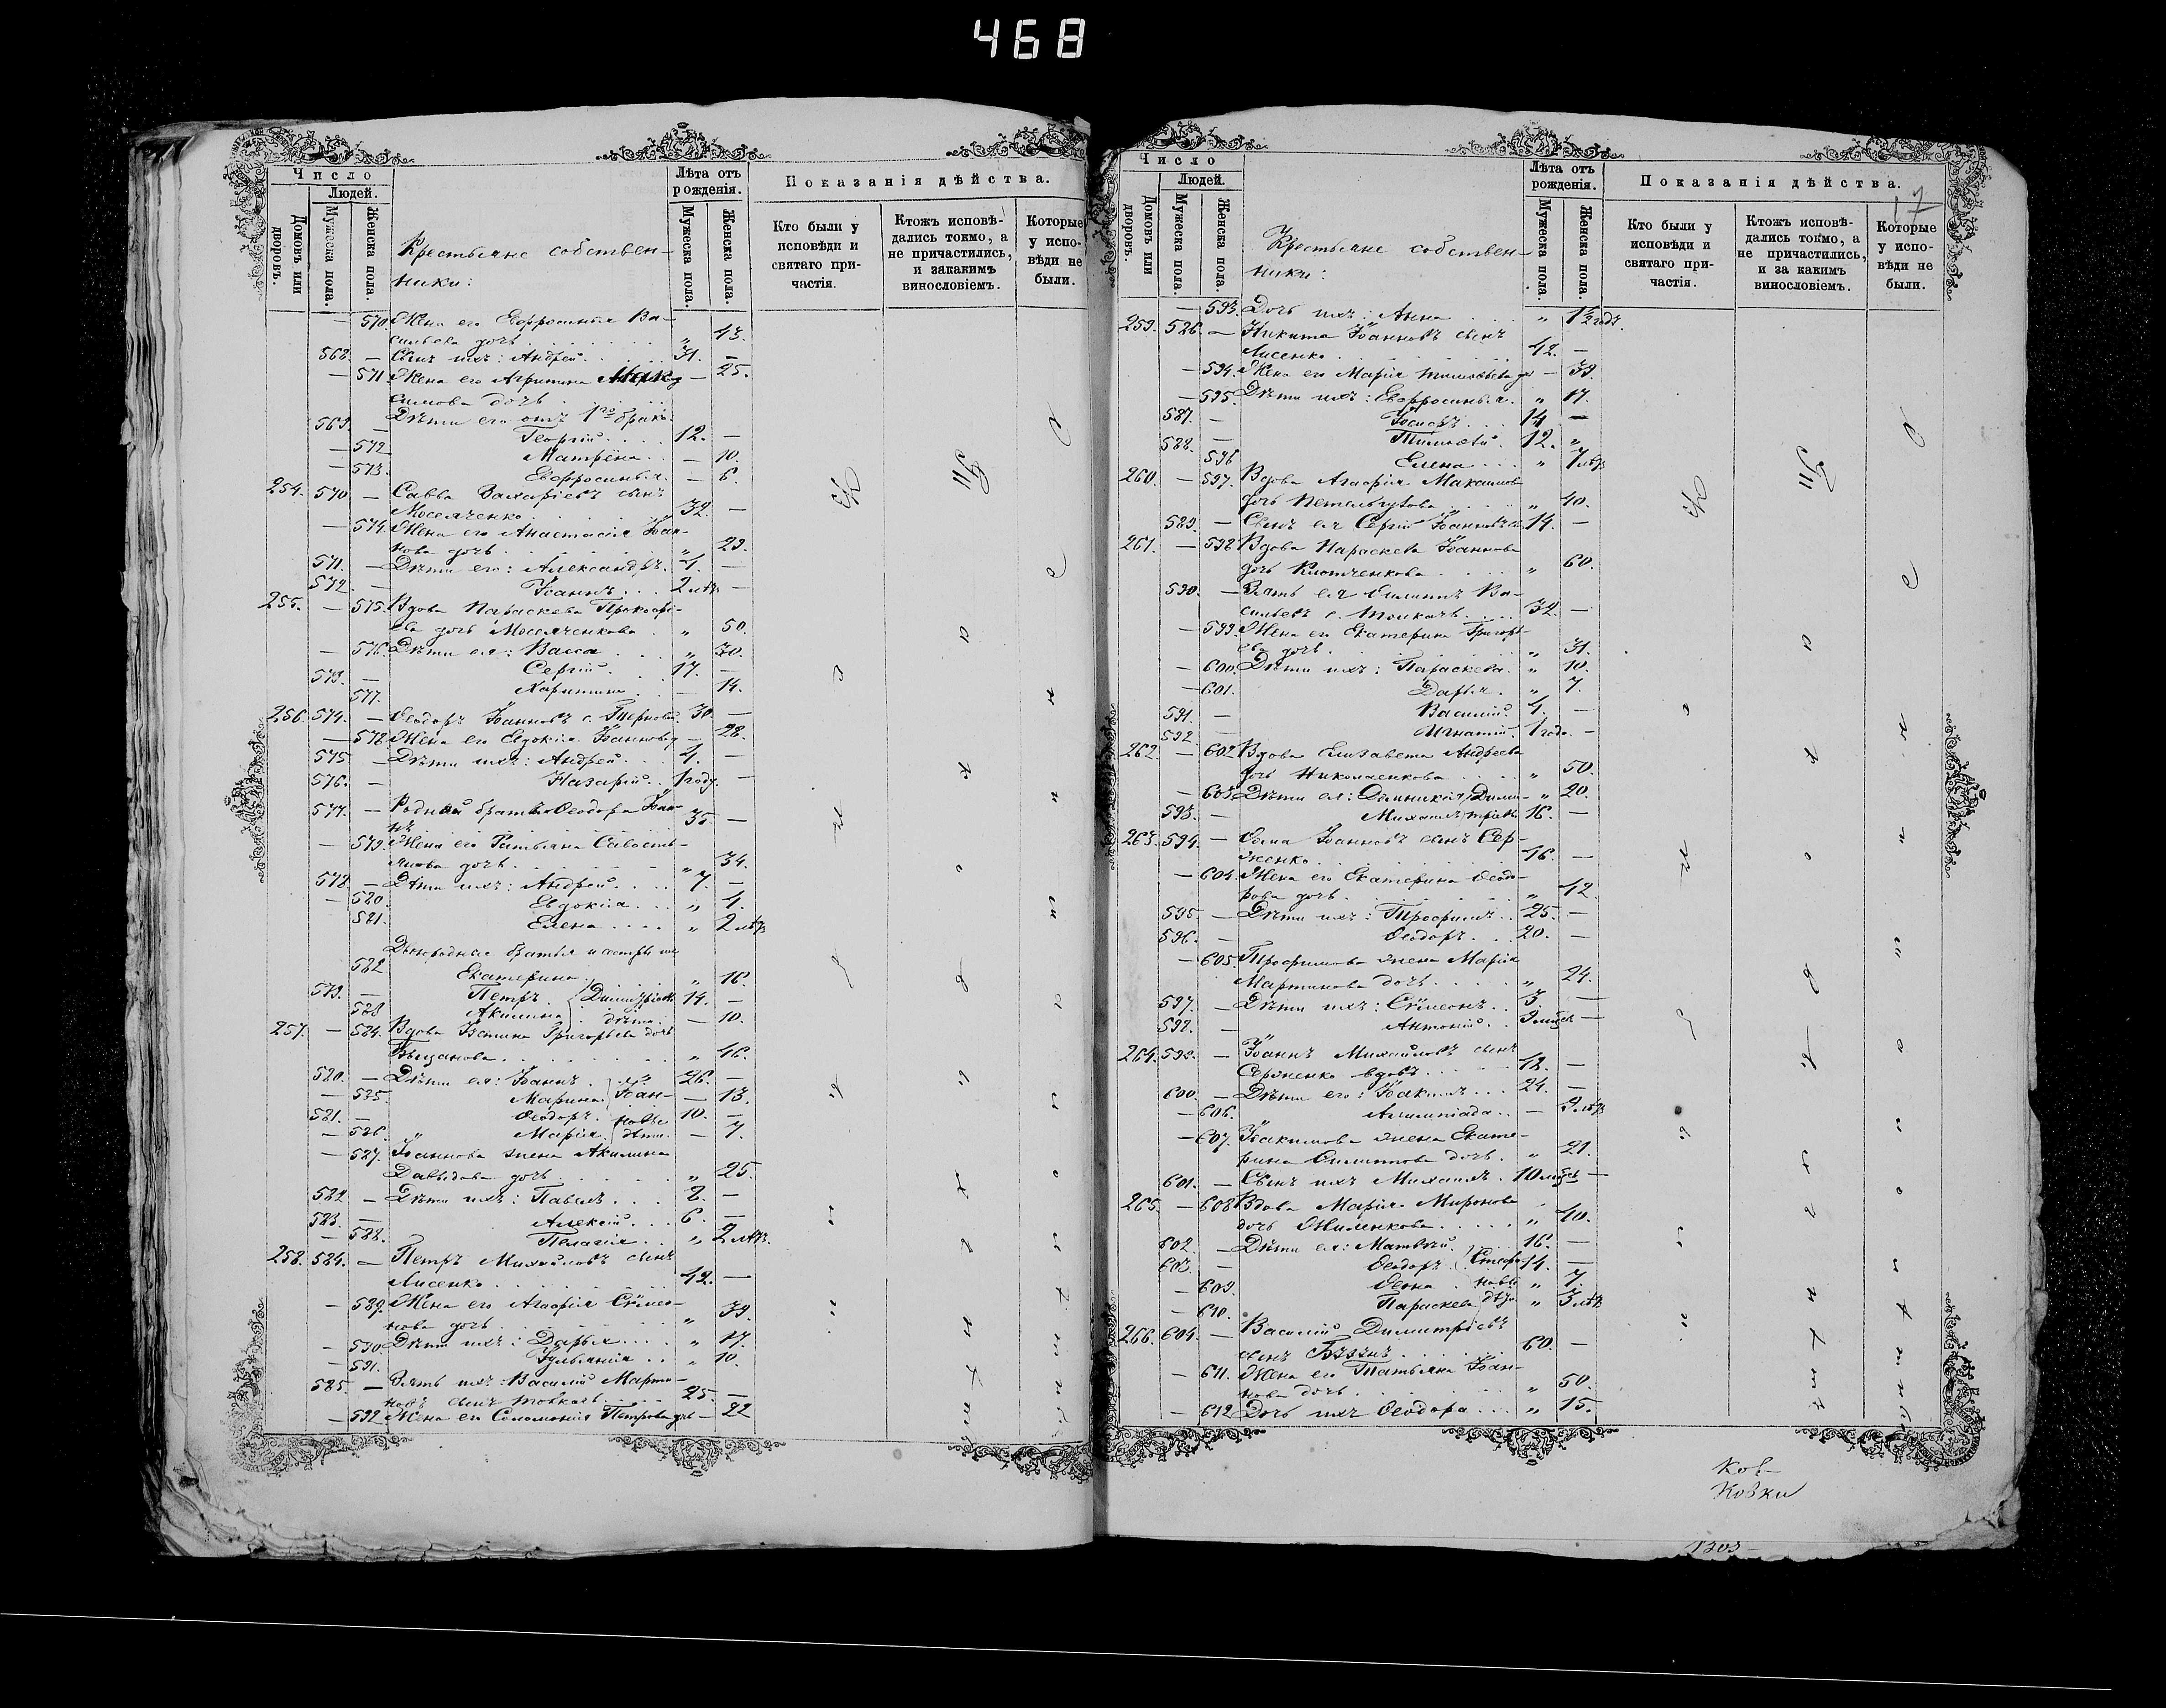 468
Число
Людей.
Домовъ или дворовъ.
Мужеска пола.
Женска пола.
Крестьяне собствен-
ники:
Лѣта отъ рожденія.
Мужеска пола.
Женска пола.
Показанія дѣйства.
Кто были у исповѣди и святаго при-частія.
Ктожъ исповѣ-дались токмо, а не причастились, и закакимъ винословіемъ.
Которые у испо-вѣди не были.
— 570 Жена его Евфросинія Ва-
сильева дочь „ 43.
568. — Сынъ ихъ: Андрей. 31. —
— 571 Жена его Агрипина Мак-
симова дочь — 25.
569. — Дѣти его отъ 1го брака:
Георгій 12. —
— 572 Матрёна — 10.
— 573. Евфросинія — 6.
254. 570 — Савва Захаріевъ сынъ
Моселченко 32. —
— 574. Жена его Анастасія Іоан-
нова дочь „ 29.
571. — Дѣти его: Александръ. 4. —
572. — Іоаннъ 2 лѣтъ —
255. — 575. Вдова Параскева Прокофі-
ева дочь Моселченкова „ 50.
— 576. Дѣти ея: Васса „ 30.
573. — Сергій 17. —
577. Харитина — 14.
256. 574. — Ѳеодоръ Іоанновъ с. Тернов 30 —
— 578. Жена его Евдокія Іоаннова — 28.
575 — Дѣти ихъ: Андрей 4. —
576. — Назарій 1 году. —
577. — Родной братъ Ѳеодора Іоан-
нъ 35. —
— 579. Жена его Татьяна Савость-
янова дочь „ 34.
578. — Дѣти ихъ: Андрей 7. —
— 580 Евдокія „ 4.
581. Елена „ 2 лѣтъ
Двоюродные братья и сестры ихъ
582 Екатерина „ 16.
579. — Петръ Димитріевы 14. —
583 Акилина дѣти — 10.
257. — 584. Вдова Іустина Григорьева дочь
„ 46.
580. — Дѣти ея: Іоаннъ 26. —
— 585. Марина Іоан- — 13.
581. — Ѳеодоръ новы 10. —
— 586. „ Марія дѣти — 7.
— 587. Іоаннова жена Акилина
Давыдова дочь „ 25.
582 — Дѣти ихъ: Павелъ 8. —
583. — Алексій 6. —
— 588. Пелагія „ 2 лѣтъ.
258. 584. — Петръ Михайловъ сынъ
Лисенко 42. —
— 589. Жена его Агафія Сѵмео-
нова дочь „ 39.
— 590 Дѣти ихъ: Дарья „ 17.
— 591. Іульянія „ 10.
585. — Зять ихъ: Василій Марти-
новъ сынъ Товкачъ 25. —
— 592 Жена его Соломонія Петрова дочь — 22
Число
Людей.
Домовъ или дворовъ.
Мужеска пола.
Женска пола.
Крестьяне собствен-
ники:
Лѣта отъ рожденія.
Мужеска пола.
Женска пола.
Показанія дѣйства.
17
Кто были у исповѣди и святаго при-частія.
Ктожъ исповѣ-дались токмо, а не причастились, и за какимъ винословіемъ.
Которые у испо-вѣди не были.
— 593. Дочь ихъ: Анна „ 1½ годъ.
259. 586. — Никита Іоанновъ сынъ
Лисенко 42. —
— 594. Жена его Марія Тимоѳеева до — 39.
— 595. Дѣти ихъ: Евфросинія. „ 17.
587. — Іосифъ 14 —
588. — Тимоѳей. 12. „
596 Елена „ 7 лѣтъ
260. — 597. Вдова Агафія Максимова
дочь „ 40.
589. — Сынъ ея Сергій Іоанновъ 14. —
261. — 598 Вдова Параскева Іоаннова
дочь Клотченкова „ 60.
590. — Зять ея Филиппъ Ва-
сильевъ с. Ткачъ 32. —
— 599. Жена его Екатерина Григорь-
ева дочь „ 31.
— 600. Дѣти ихъ: Параскева. „ 10.
— 601. Дарья. „ 7.
591. — Василій. 4. —
592. — Игнатій. 1 года. —
262. — 602 Вдова Елизавета Андреева
дочь Николаенкова „ 50.
— 603. Дѣти ея: Домникія Дими- „ 20.
593. — Михаилъ тріевы 16. —
263. 594. — Ѳома Іоанновъ сынъ Сер-
женко 46. —
— 604. Жена его Екатерина Ѳеодо-
рова дочь „ 42
595. — Дѣти ихъ: Трофимъ 25. —
596. — Ѳеодоръ 20. —
— 605. Трофимова жена Марія
Мартинова дочь „ 24.
597. — Дѣти ихъ: Сѵмеонъ 3. —
598. — Антоній 9 мѣсяц —
264. 599. — Іоаннъ Михайловъ сынъ
Серженко вдовъ 48. —
600. — Дѣти его: Іоакимъ 24. —
— 606. Алимпіада — 9 лѣтъ
— 607. Іоакимова жена Екате-
рина Филиппова дочь. „ 21.
601. — Сынъ ихъ Михаилъ. 10 мѣсяц —
265. — 608 Вдова Марія Миронова
дочь Жиленкова „ 40.
602. — Дѣти ея: Матвѣй. 16. —
603. — Ѳеодоръ Стефа- 14. —
— 609. новы „ 7.
— 610. Параскева дѣти „ 3 лѣтъ
266. 604. — Василій Димитріевъ
сынъ 60. —
— 611. Жена его Татьяна Іоан-
нова дочь „ 50.
— 612 Дочь ихъ Ѳеодора „ 15.
Ков-
Ковки
1203